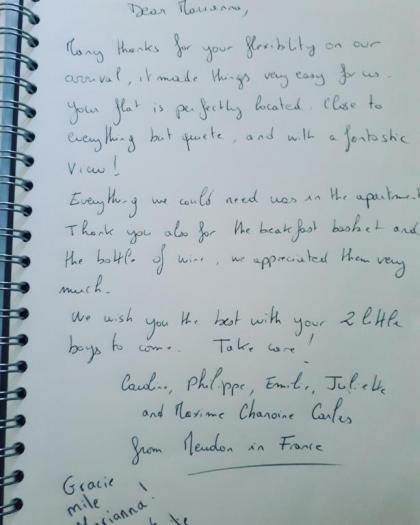 Dear Marianna,
Many thanks for your flexiblity on our
arrival, it made things very easy for us.
Your flat is perfectly located. Close to
everything but quiete, and with a fantastic
view!
Everything we could need was in the apartment
Thank you also for the breakfast basket and
the bottle of wine, we appreciated them very
much.
We wish you the best with your 2 little
boys to come. Take care!
Caroline, Philippe, Emilie, Juliette
and Maxime Chanoine Carles
from Meudon in France
Gracie
mile
Marianna!